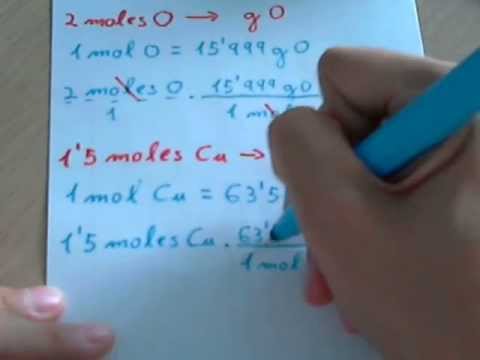 2 moles O → g O
1 mol O = 15'999 g O
2 moles O . 15'999 g O
1 1
1'5 moles Cu →
1 mol Cu = 63'5
1'5 moles Cu . 63'
1 mol